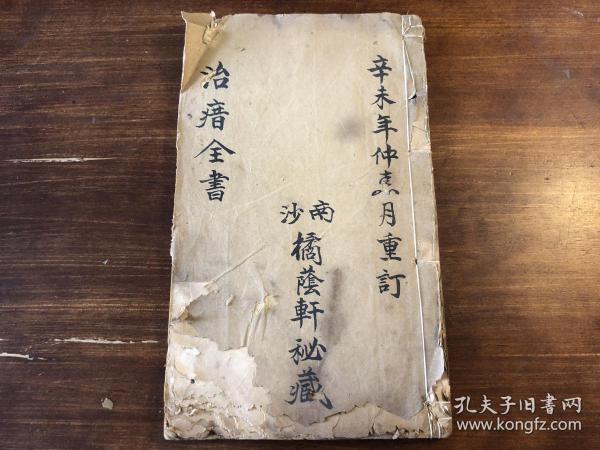 辛未年仲喜月重訂
南沙
橘蔭軒秘藏
治瘄全書
孔夫子旧書网
www.kongfz.com